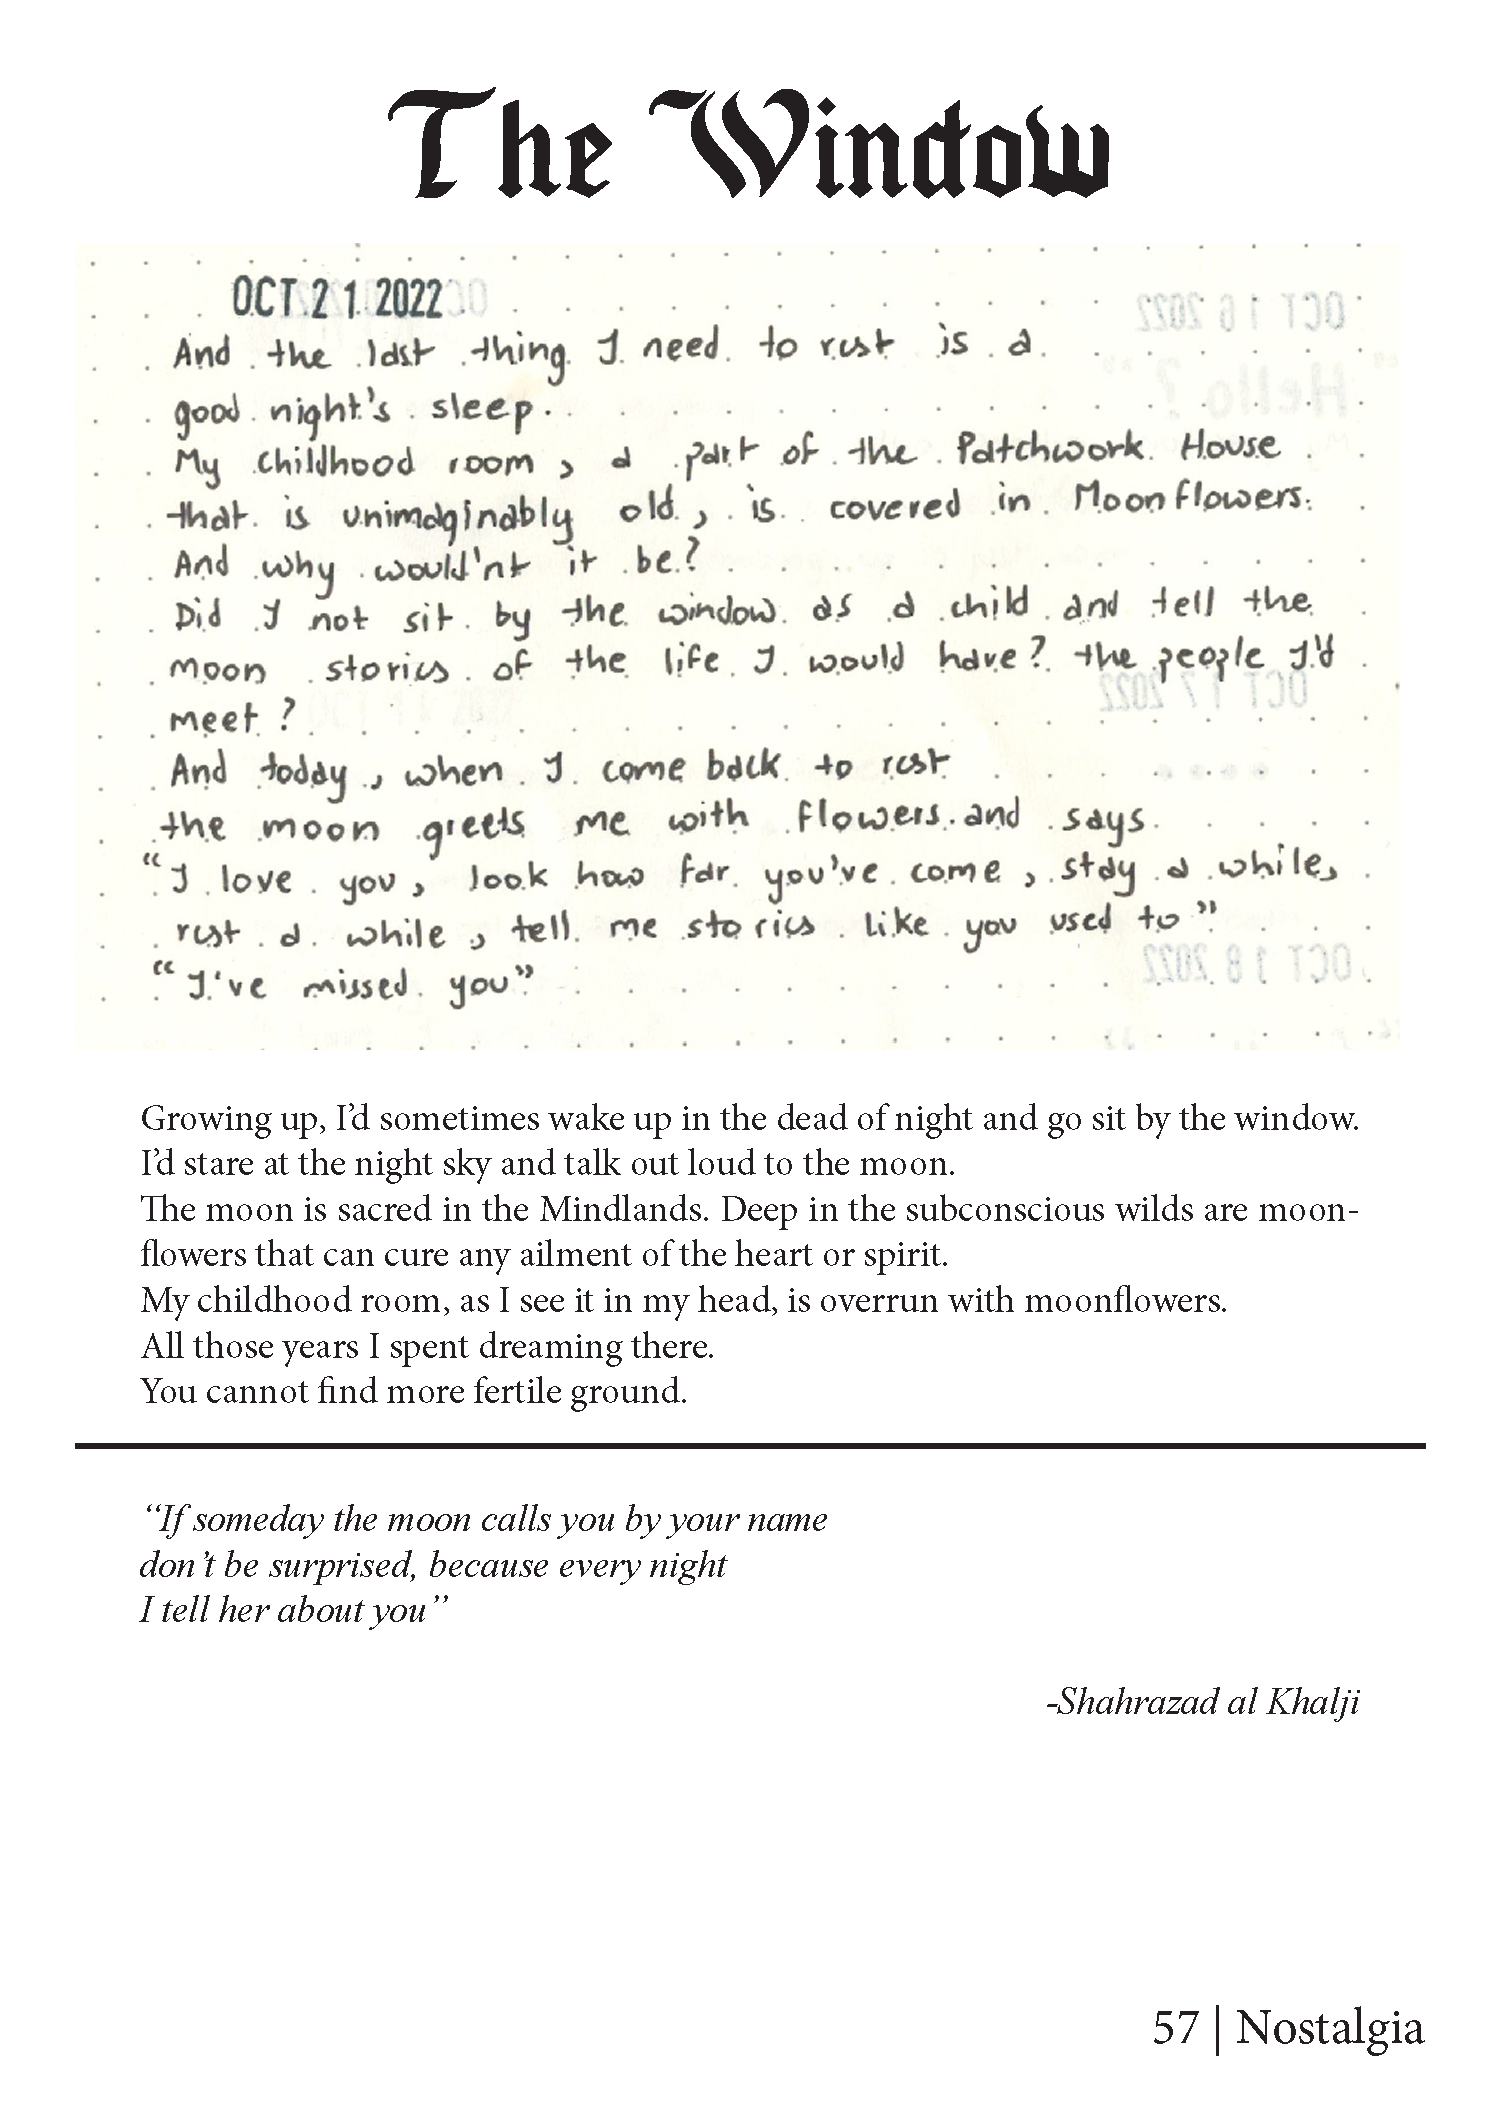 The Window
OCT 21 2022
And the last thing I need to rest is a
good night's sleep.
My childhood room, a part of the Patchwork House
that is unimaginably old, is covered in Moonflowers.
And why would'nt it be?
Did I not sit by the window as a child and tell the
moon stories of the life I would have? the people I'd
meet?
And today, when I come back to rest
the moon greets me with flowers and says
"I love you, look how far you've come, stay a while,
rest a while, tell me stories like you used to"
"I've missed you"
OCT 16 2022
Hello?
OCT 17 2022
OCT 18 2022
Growing up, I’d sometimes wake up in the dead of night and go sit by the window.
I’d stare at the night sky and talk out loud to the moon.
The moon is sacred in the Mindlands. Deep in the subconscious wilds are moon-
flowers that can cure any ailment of the heart or spirit.
My childhood room, as I see it in my head, is overrun with moonflowers.
All those years I spent dreaming there.
You cannot find more fertile ground.
“If someday the moon calls you by your name
don’t be surprised, because every night
I tell her about you”
-Shahrazad al Khalji
57 | Nostalgia